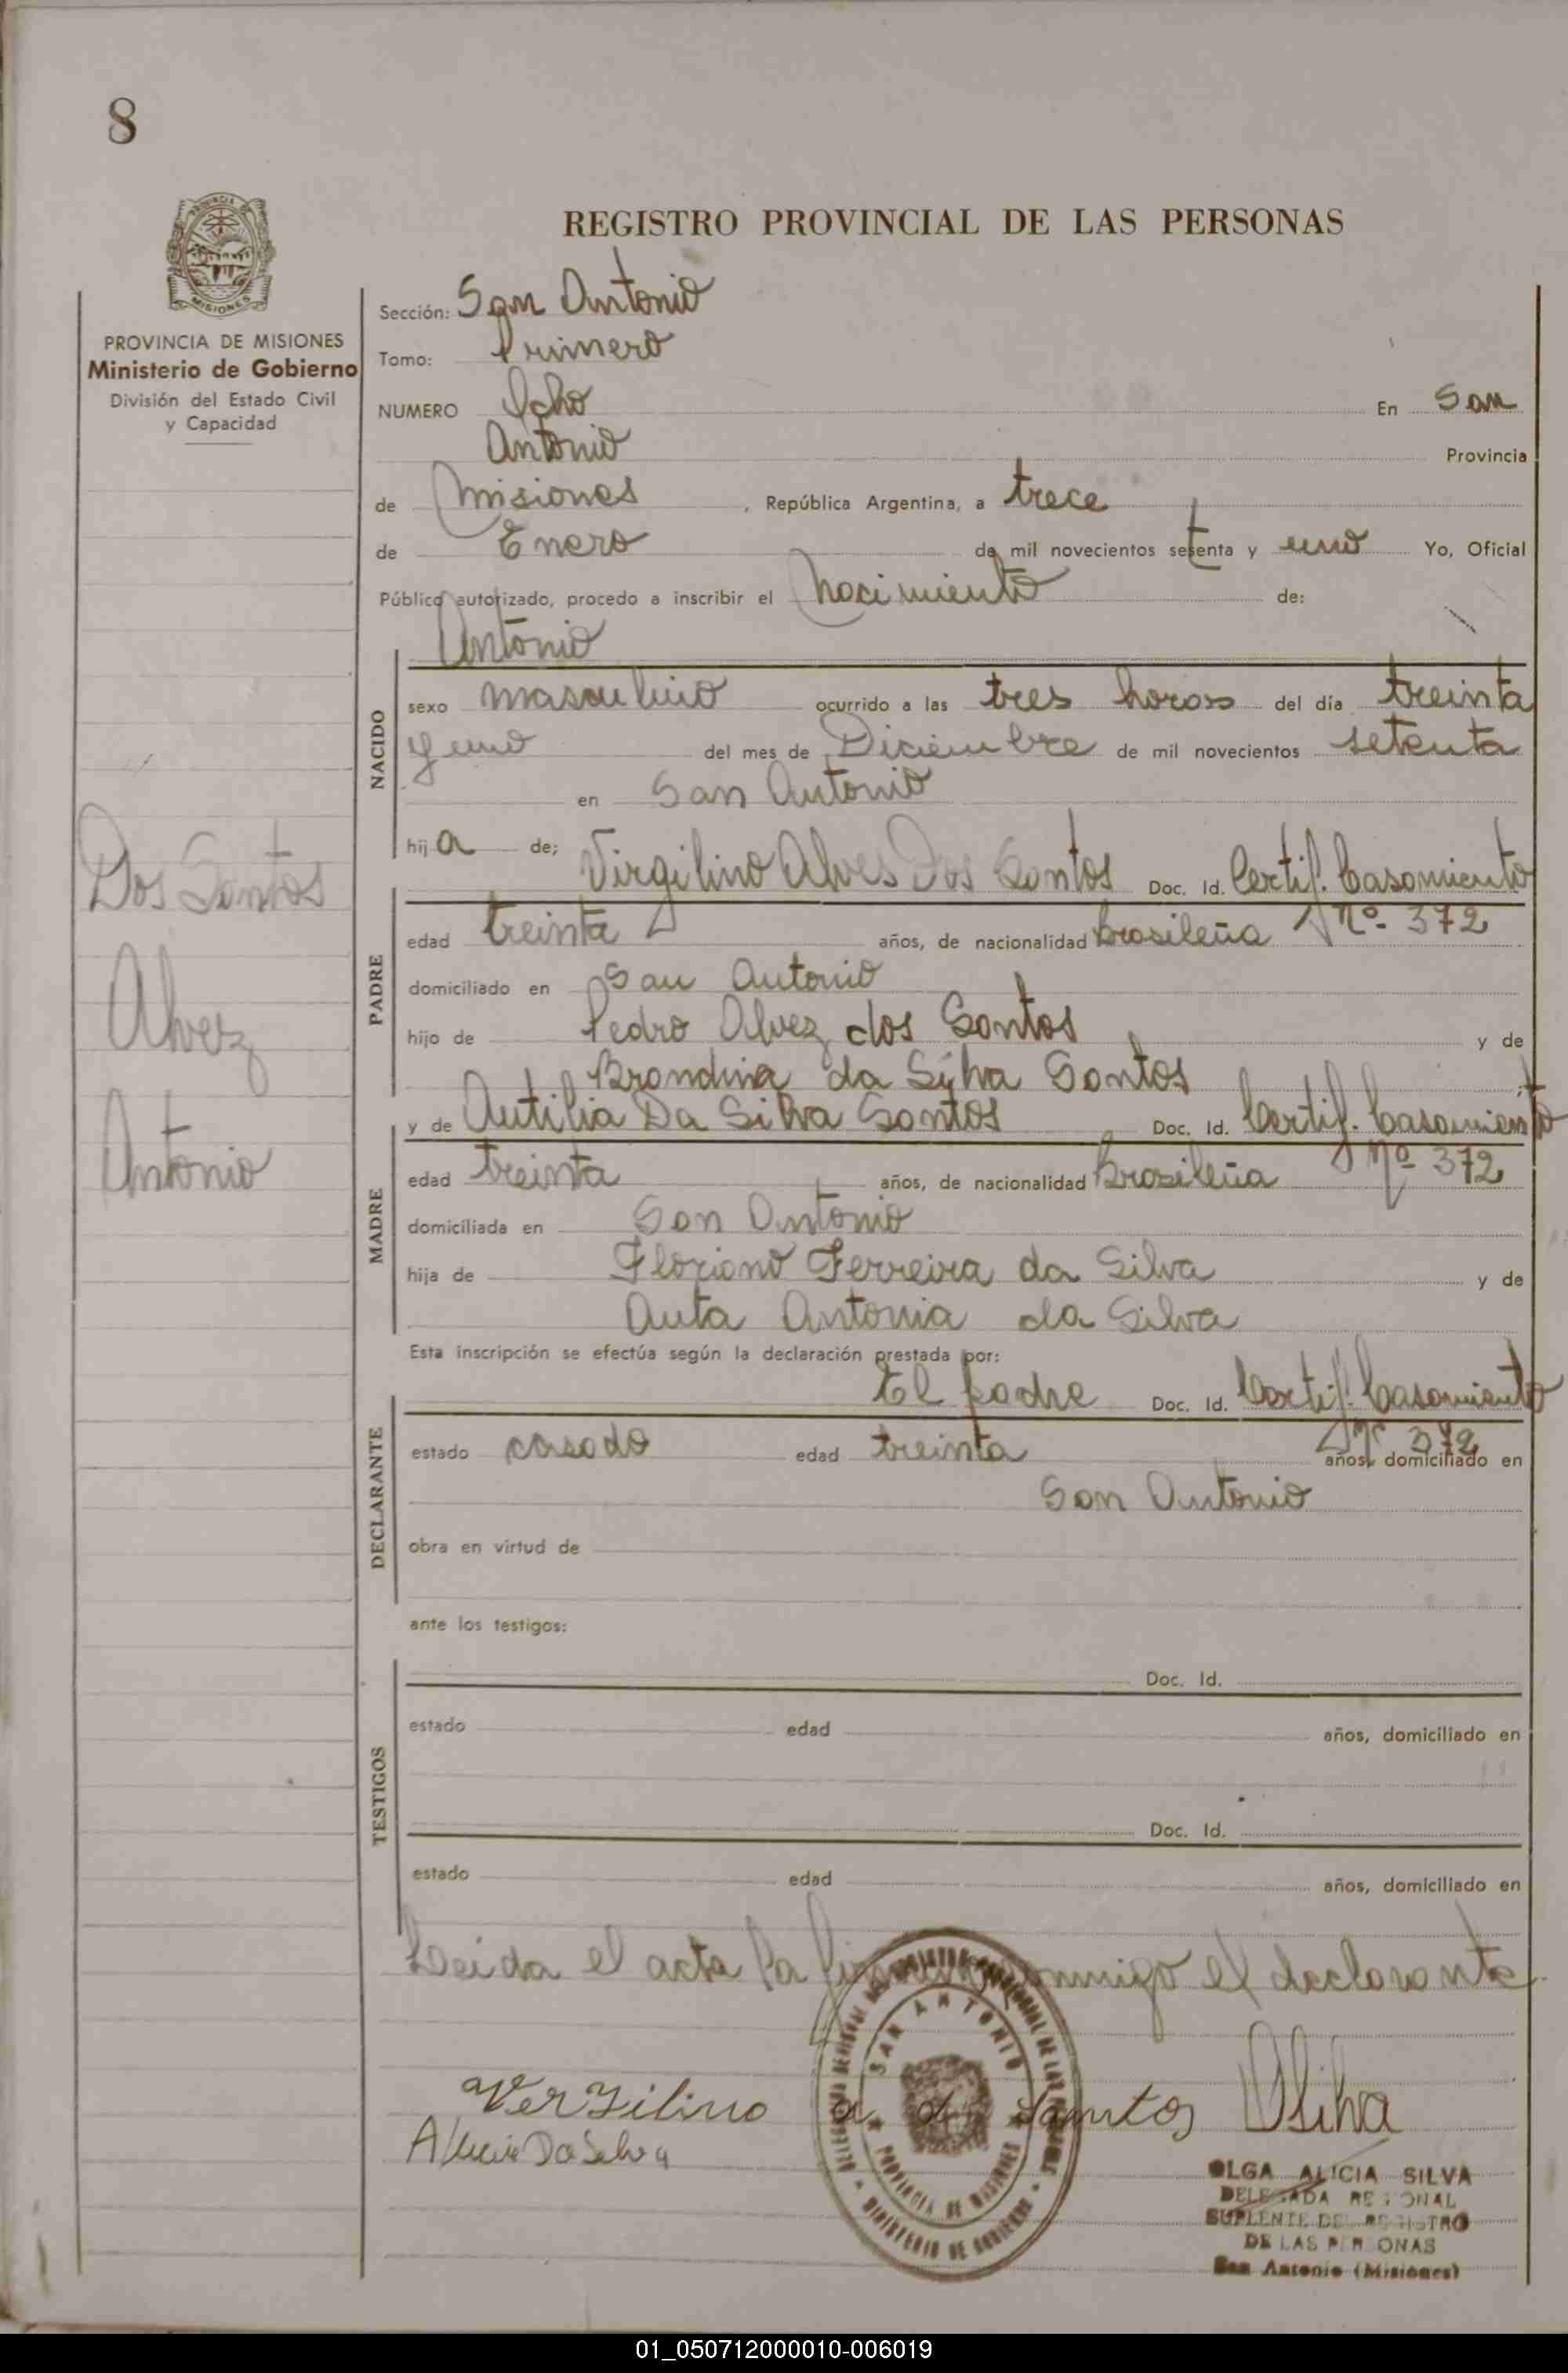 8
REGISTRO PROVINCIAL DE LAS PERSONAS
PROVINCIA DE MISIONES
Ministerio de Gobierno
División del Estado Civil
y Capacidad
Sección: San Antonio
Tomo: Primero
NUMERO Ocho En San
Antonio Provincia
de Misiones, República Argentina, a trece
de Enero de mil novecientos setenta y uno Yo, Oficial
Público autorizado, procedo a inscribir el Nacimiento de:
Antonio
NACIDO
sexo masculino ocurrido a las tres horas del día treinta
y uno del mes de Diciembre de mil novecientos setenta
en San Antonio
hija de; Virgilino Alves Dos Santos Doc. Id. Certif. Casamiento
PADRE
edad treinta años, de nacionalidad Brasileña Nº 372
domiciliado en San Antonio
hijo de Pedro Alvez dos Santos y de
Brandina da Silva Santos
y de Autilia Da Silva Santos Doc. Id. Certif. Casamiento
MADRE
edad treinta años, de nacionalidad Brasileña Nº 372
domiciliada en San Antonio
hija de Floriano Ferreira da Silva y de
Auta Antonia da Silva
Esta inscripción se efectúa según la declaración prestada por:
El padre Doc. Id. Certif. Casamiento
DECLARANTE
Nº 372
estado casado edad treinta años, domiciliado en
San Antonio
obra en virtud de
ante los testigos:
TESTIGOS
Doc. Id.
estado edad años, domiciliado en
Doc. Id.
estado edad años, domiciliado en
Leida el acta la firman conmigo el declarante
Dos Santos
Alvez
Antonio
Verzilino a d Santos OSilva
Da Silva
SAN ANTONIO
PROVINCIA DE MISIONES
MINISTERIO DE GOBIERNO
OLGA ALICIA SILVA
DELEGADA REGIONAL
SUPLENTE DEL REGISTRO
DE LAS PERSONAS
San Antonio (Misiones)
01_050712000010-006019